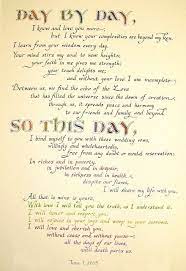 DAY BY DAY,
I know and love you more,
but I know your complexities are beyond my ken.
I learn from your wisdom every day.
Your mind stirs my soul to new heights;
your faith in me gives me strength;
your touch delights me;
and without your love I am incomplete.
Between us, we find the echo of the Love
that has filled the universe since the dawn of creation;
through us, it spreads peace and harmony
to our friends and family and beyond.
SO THIS DAY,
I bind myself to you with these wedding vows,
willingly and wholeheartedly,
free from any doubt or mental reservations:
In riches and in poverty,
in jubilation and in despair,
in sickness and in health,
despite our flaws,
I will share my life with you.
All that is mine is yours.
With love I will tell you the truth, so I understand
I will honor and respect you,
I will
I will love and cherish you,
without cause and without pause
all the days of our lives,
until death parts us.
June